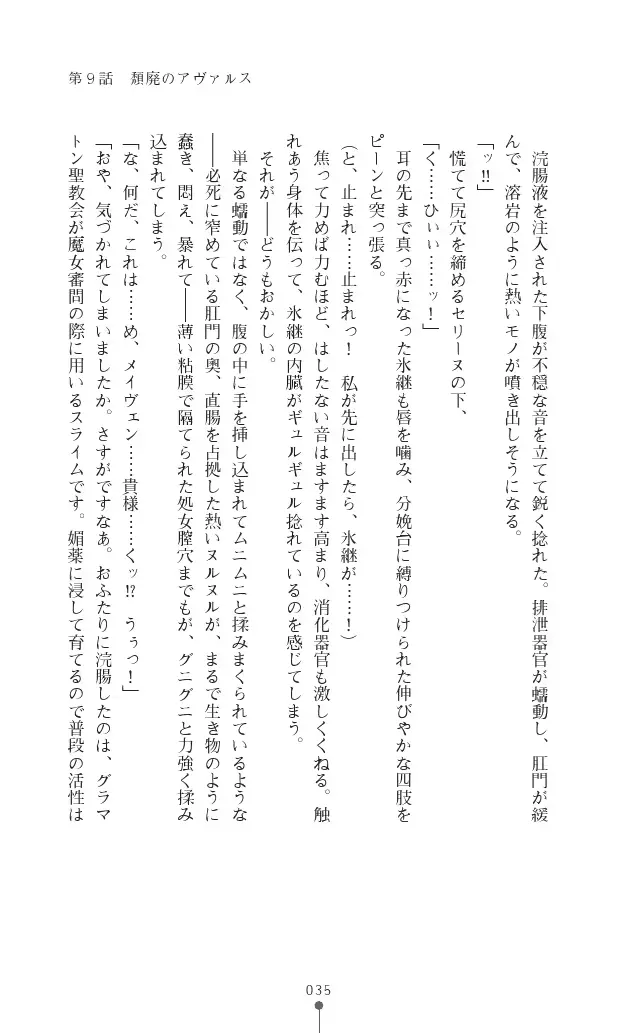 第9話　頽廃のアヴァルス
　浣腸液を注入された下腹が不穏な音を立てて鋭く捻れた。排泄器官が蠕動し、肛門が緩
んで、溶岩のように熱いモノが噴き出しそうになる。
「ッ!!」
　慌てて尻穴を締めるセリーヌの下、
「く……ひぃぃ……ッ！」
　耳の先まで真っ赤になった氷継も唇を噛み、分娩台に縛りつけられた伸びやかな四肢を
ピーンと突っ張る。
（と、止まれ……止まれっ！　私が先に出したら、氷継が……！）
　焦って力めば力むほど、はしたない音はますます高まり、消化器官も激しくくねる。触
れあう身体を伝って、氷継の内臓がギュルギュル捻れているのを感じてしまう。
　それが――どうもおかしい。
　単なる蠕動ではなく、腹の中に手を挿し込まれてムニムニと揉みまくられているような
――必死に窄めている肛門の奥、直腸を占拠した熱いヌルヌルが、まるで生き物のように
蠢き、悶え、暴れて――薄い粘膜で隔てられた処女膣穴までもが、グニグニと力強く揉み
込まれてしまう。
「な、何だ、これは……め、メイヴェン……貴様……くッ!?　うぅっ！」
「おや、気づかれてしまいましたか。さすがですなあ。おふたりに浣腸したのは、グラマ
トン聖教会が魔女審問の際に用いるスライムです。媚薬に浸して育てるので普段の活性は
035